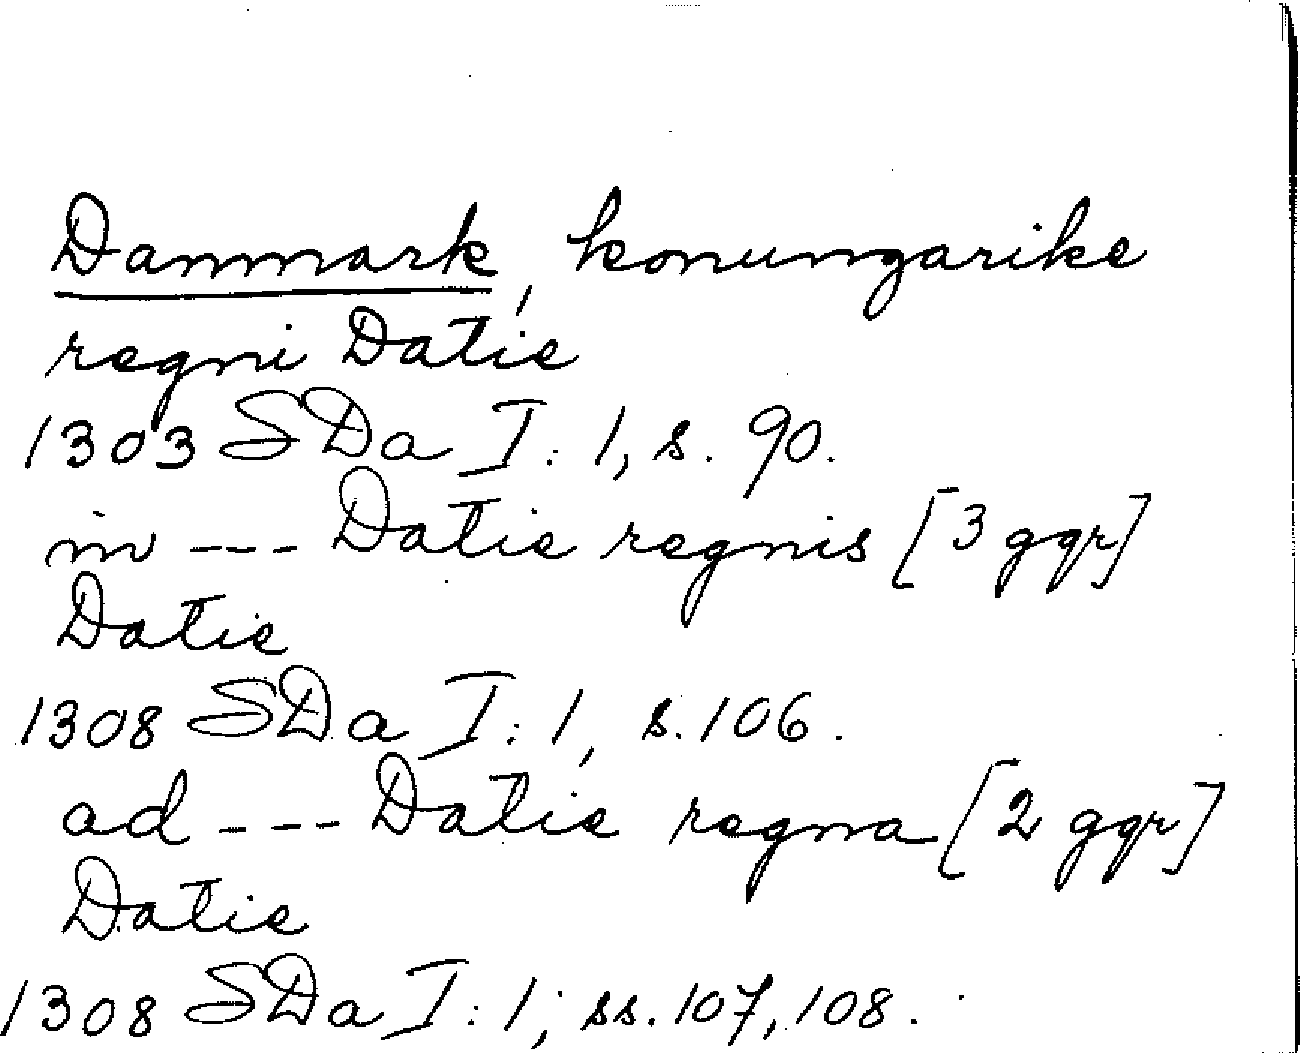 Danmark, konungarike
regni Datie
1303 SDa I:1, s. 90.
in --- Datie regnis [3 ggr]
Datie
1308 SDa I:1, s. 106.
ad --- Datie regna [2 ggr]
Datie
1308 SDa I:1; ss. 107, 108.